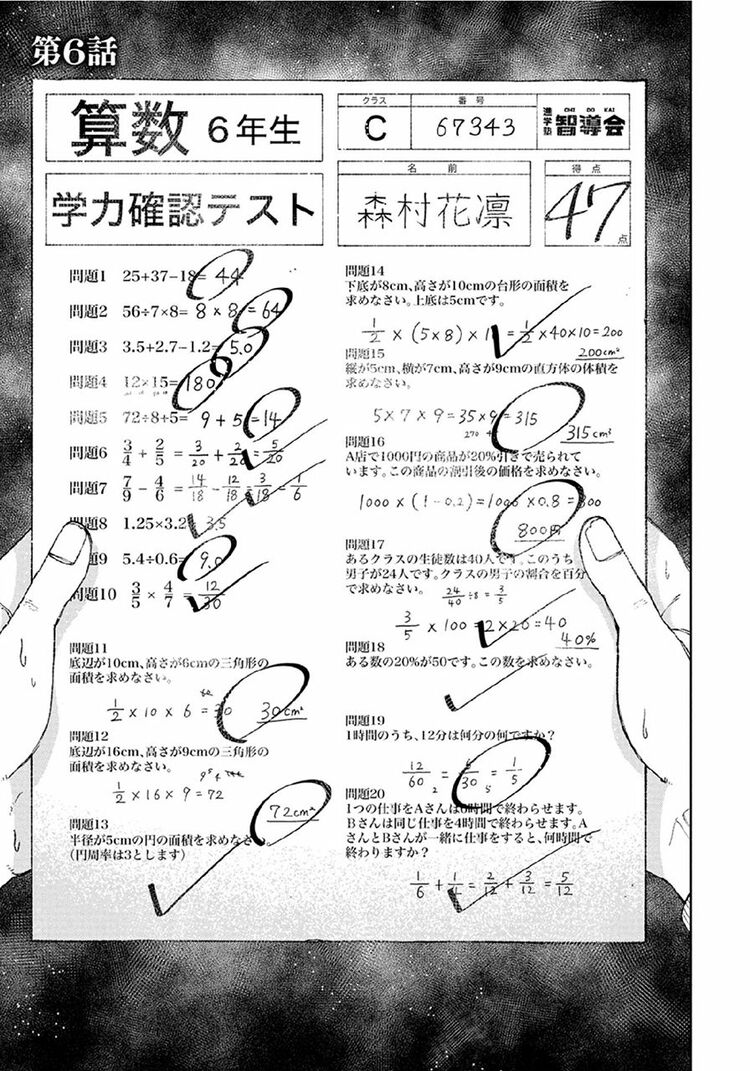 第6話
算数 6年生
学力確認テスト
クラス
C
番号
67343
進学塾
CHI DO KAI
智導会
名前
森村花凛
得点
47
点
問題1 25+37-18= 44
問題2 56÷7×8= 8 × 8 = 64
問題3 3.5+2.7-1.2= 5.0
問題4 12×15= 180
問題5 72÷8+5= 9 + 5 = 14
問題6 3/4 + 2/5 = 3/20 + 2/20 = 5/20
問題7 7/9 - 4/6 = 14/18 - 12/18 = 3/18 = 1/6
問題8 1.25×3.2 3.5
問題9 5.4÷0.6= 9.0
問題10 3/5 × 4/7 = 12/30
問題11
底辺が10cm、高さが6cmの三角形の
面積を求めなさい。
1/2 × 10 × 6 = 30 30cm²
問題12
底辺が16cm、高さが9cmの三角形の
面積を求めなさい。
1/2 × 16 × 9 = 72
72cm²
問題13
半径が5cmの円の面積を求めなさい。
(円周率は3とします)
問題14
下底が8cm、高さが10cmの台形の面積を
求めなさい。上底は5cmです。
1/2 × (5×8) × 1 = 1/2 × 40 × 10 = 200
200cm²
問題15
縦が5cm、横が7cm、高さが9cmの直方体の体積を
求めなさい。
5 × 7 × 9 = 35 × 9 = 315
270 +
315cm²
問題16
A店で1000円の商品が20%引きで売られて
います。この商品の割引後の価格を求めなさい。
1000 × (1-0.2) = 1000 × 0.8 = 800
800円
問題17
あるクラスの生徒数は40人です。このうち
男子が24人です。クラスの男子の割合を百分
で求めなさい。 24/40 ÷8 = 3/5
3/5 × 100 = 2 × 20 = 40
40%
問題18
ある数の20%が50です。この数を求めなさい。
問題19
1時間のうち、12分は何分の何ですか?
12/60 2 = 6/30 5 = 1/5
問題20
1つの仕事をAさんは6時間で終わらせます。
Bさんは同じ仕事を4時間で終わらせます。A
さんとBさんが一緒に仕事をすると、何時間で
終わりますか?
1/6 + 1/4 = 2/12 + 3/12 = 5/12